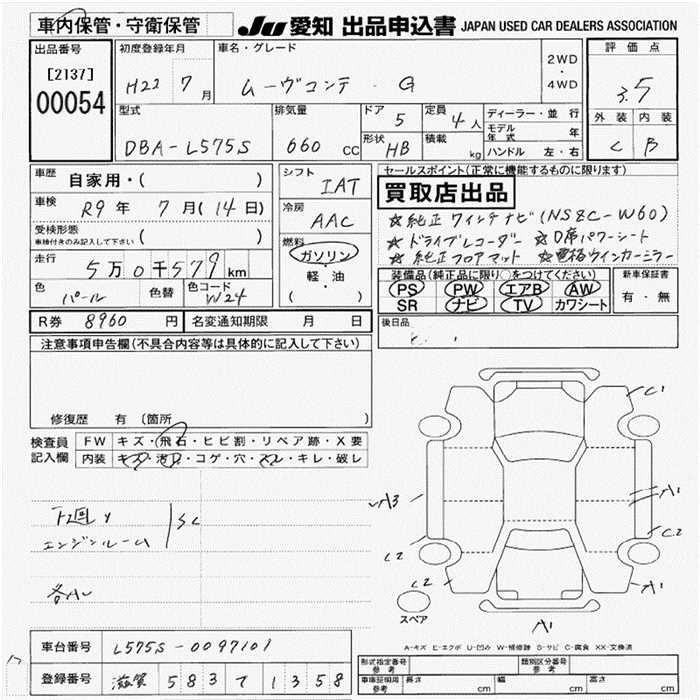 車内保管・守衛保管
JU 愛知 出品申込書 JAPAN USED CAR DEALERS ASSOCIATION
出品番号
[2137]
00054
初度登録年月
H22 7月
車名・グレード
ムーヴコンテ ・ G
2WD
・
4WD
評価点
3.5
外装 内装
C B
型式
DBA-L575S
排気量
660 CC
ドア
5
形状
HB
定員
4人
積載
kg
ディーラー・並行
モデル年式 年
ハンドル 左・右
車歴
自家用・( )
車検
R9年 7月(14日)
受検形態
車検付きのみ記入して下さい ( )
走行
5万0千579km
色
パール
色替
色コード
W24
シフト
IAT
冷房
AAC
燃料
ガソリン
・
軽・油
( )
セールスポイント(正常に機能するものに限ります)
買取店出品
☆純正ワインチナビ(NSZC-W60)
☆ドライブレコーダー ☆D席パワーシート
☆純正フロアマット ☆電格ウインカーミラー
装備品(純正品に限り○をつけてください)
PS PW エアB AW
SR ナビ TV カワシート
新車保証書
有・無
後日品
R券 8960 円 名変通知期限 月 日
注意事項申告欄(不具合内容等は具体的に記入して下さい)
修復歴 有 (箇所 )
検査員
記入欄
FW キズ・飛石・ヒビ割・リペア跡・X要
内装 キズ・汚れ・コゲ・穴・スレ・キレ・破レ
下回り
エンジンルーム
SC
各AU
C1
A3
A1
C2
C2
C2
A1
A1
スペア
A-キズ E-エクボ U-凹み W-補修跡 S-サビ C-腐食 XX-交換済
車台番号 L575S-0097101
登録番号 滋賀 583 て 1358
形式指定番号
参考
類別区分番号
参考
車庫証明用
参考
長さ cm 幅 cm 高さ cm